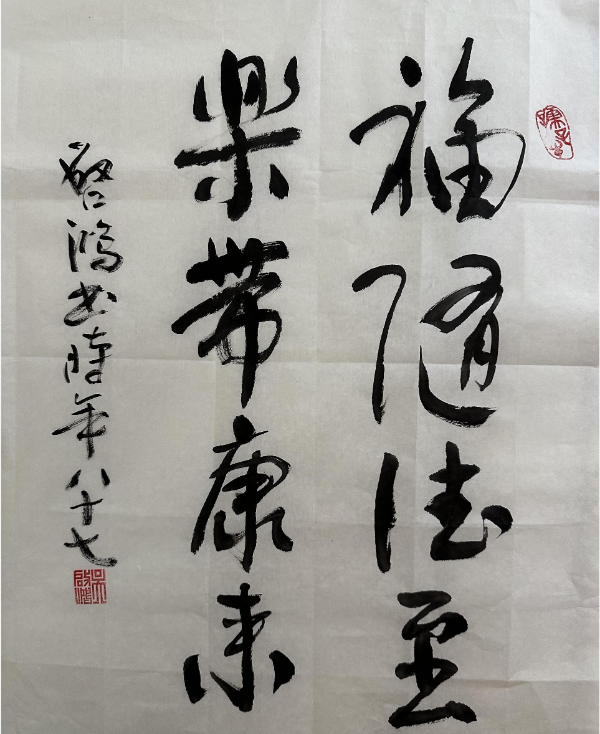 福随德至
樂帶康来
啓鴻书時年八十七